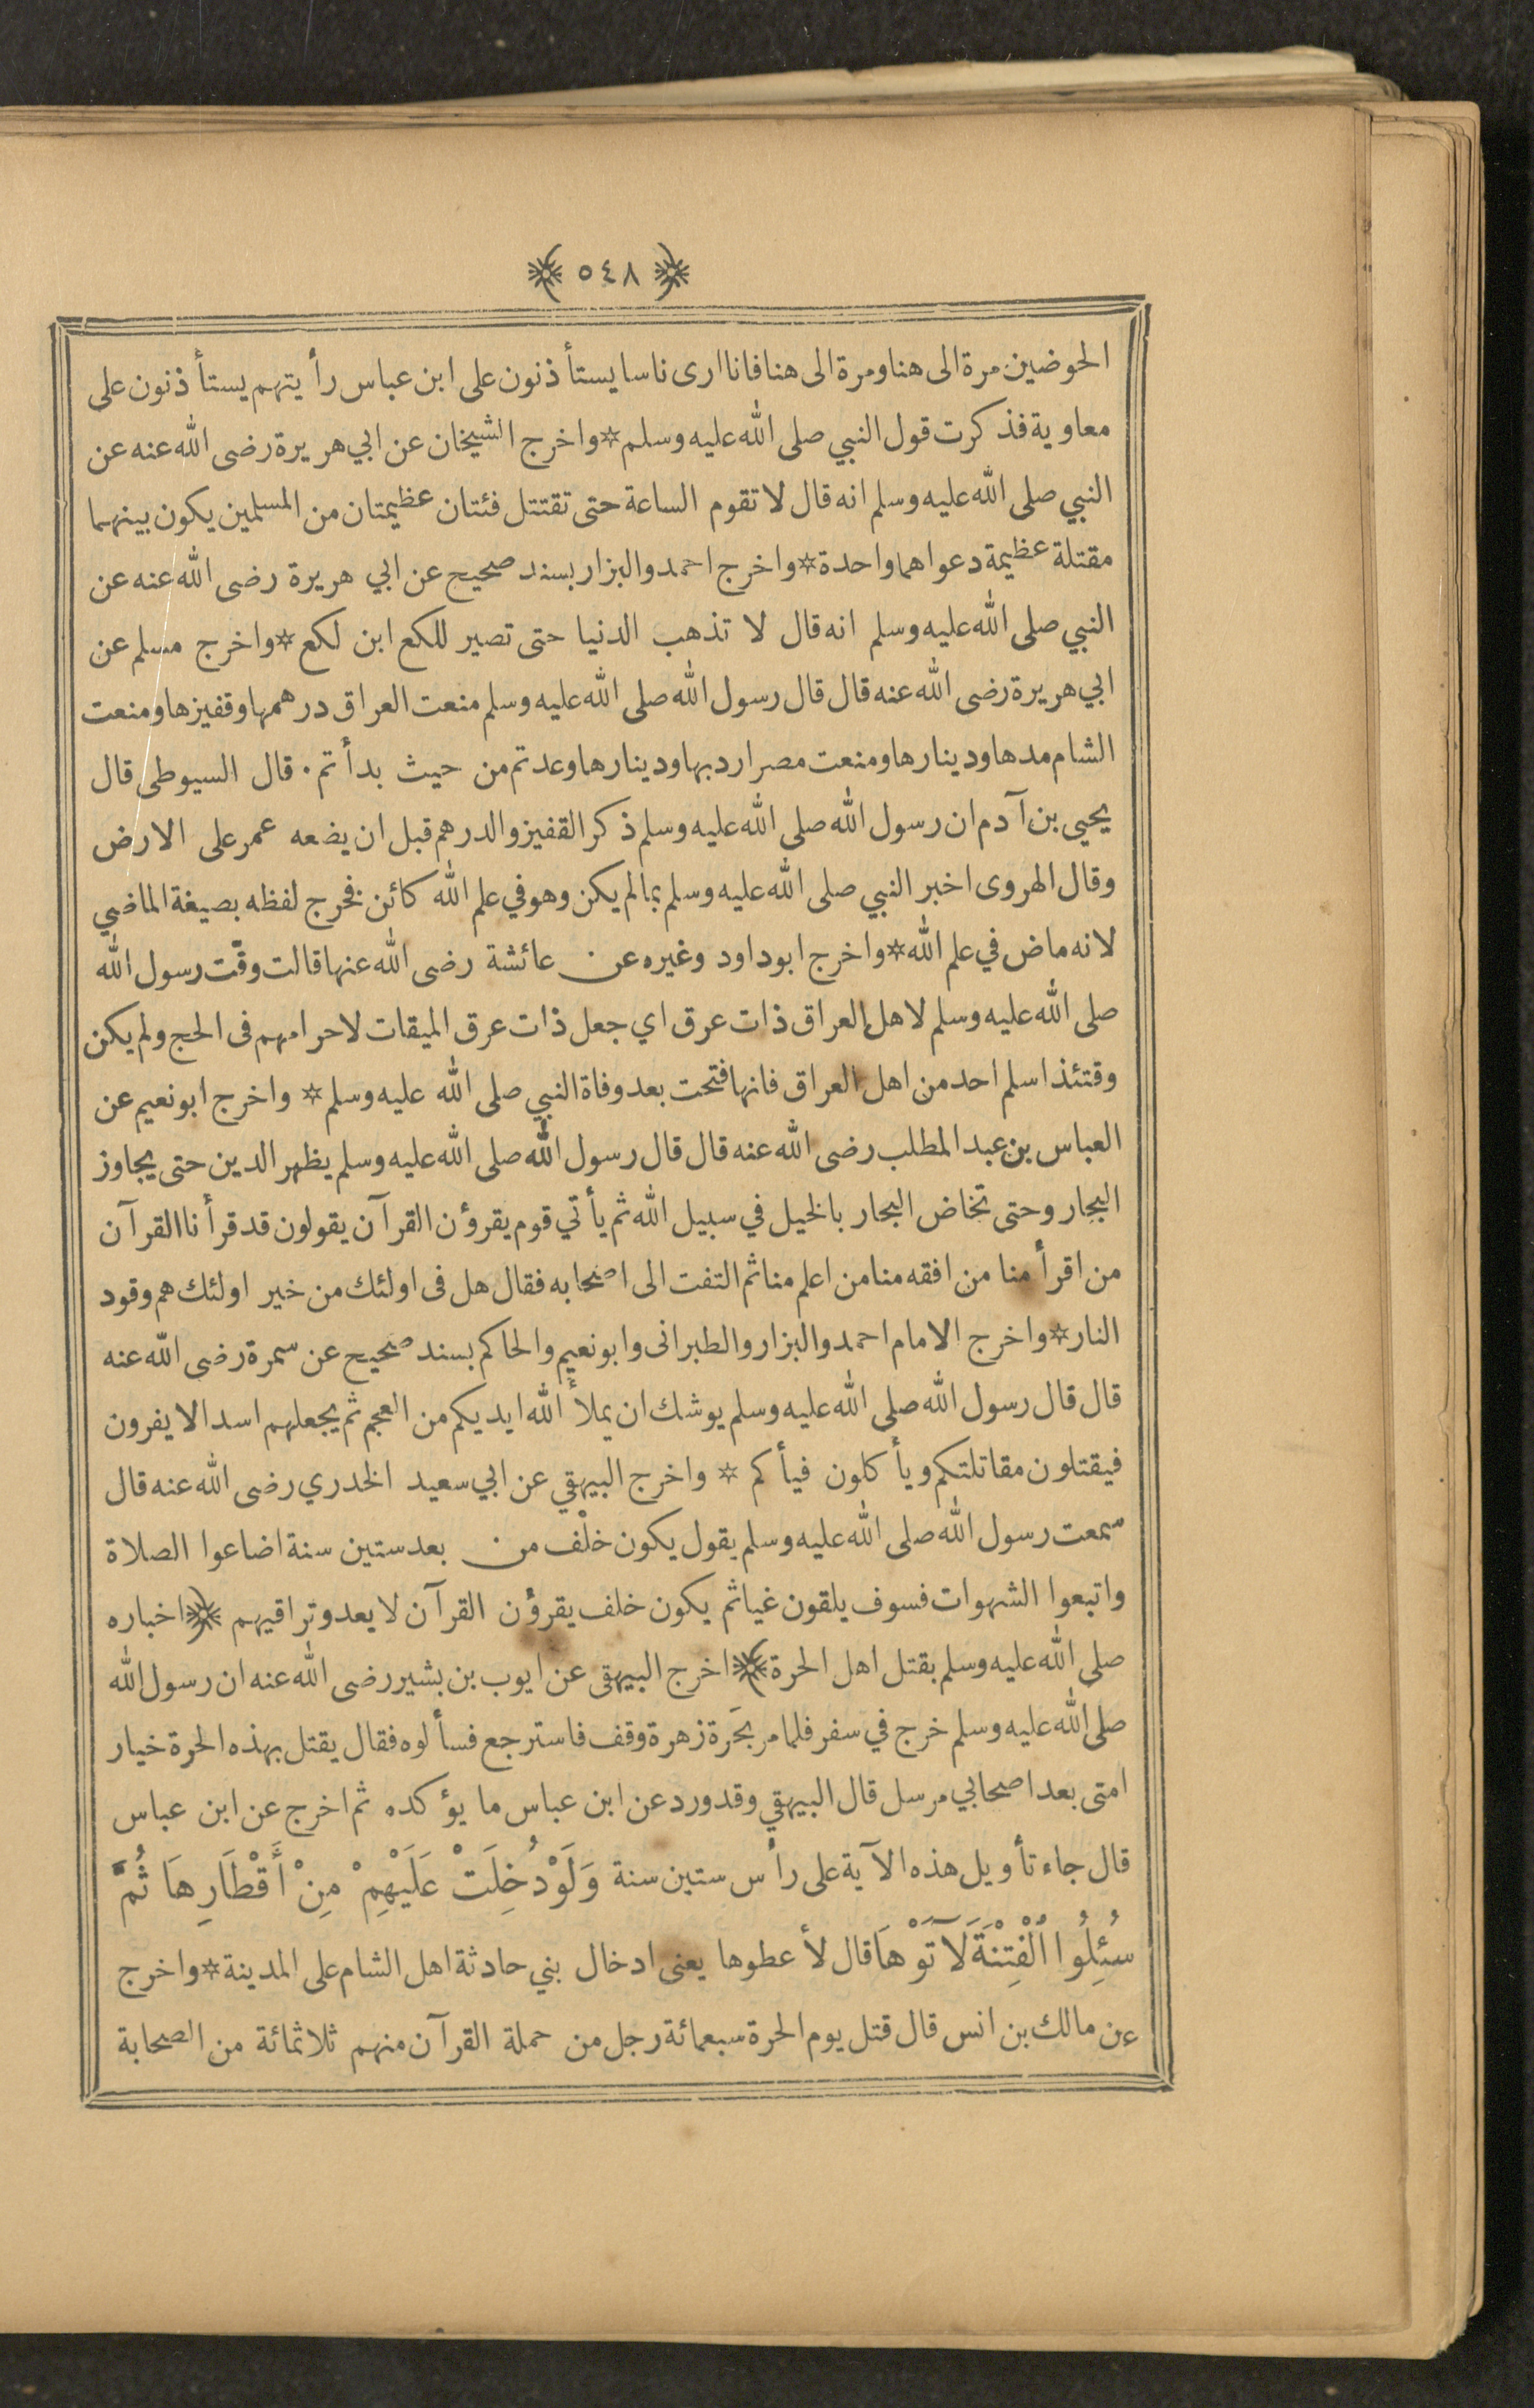 ﴿ ٥٤٨ ﴾
الحوضين مرة الى هنا ومرة الى هنا فانا ارى ناسا يستأذنون على ابن عباس رأيتهم يستأذنون على
معاوية فذكرت قول النبي صلى الله عليه وسلم * واخرج الشيخان عن ابي هريرة رضى الله عنه عن
النبي صلى الله عليه وسلم انه قال لا تقوم الساعة حتى تقتتل فئتان عظيمتان من المسلمين يكون بينهما
مقتلة عظيمة دعواهما واحدة * واخرج احمد والبزار بسند صحيح عن ابي هريرة رضى الله عنه عن
النبي صلى الله عليه وسلم انه قال لا تذهب الدنيا حتى تصير للكع ابن لكع * واخرج مسلم عن
ابي هريرة رضى الله عنه قال قال رسول الله صلى الله عليه وسلم منعت العراق درهمها وقفيزها ومنعت
الشام مدها ودينارها ومنعت مصر اردبها ودينارها وعدتم من حيث بدأتم . قال السيوطى قال
يحيى بن آدم ان رسول الله صلى الله عليه وسلم ذكر القفيز والدرهم قبل ان يضعه عمر على الارض
وقال الهروى اخبر النبي صلى الله عليه وسلم بما لم يكن وهو في علم الله كائن فخرج لفظه بصيغة الماضي
لانه ماض في علم الله * واخرج ابو داود وغيره عن عائشة رضى الله عنها قالت وقّت رسول الله
صلى الله عليه وسلم لاهل العراق ذات عرق اي جعل ذات عرق الميقات لاحرامهم فى الحج ولم يكن
وقتئذ اسلم احد من اهل العراق فانها فتحت بعد وفاة النبي صلى الله عليه وسلم * واخرج ابو نعيم عن
العباس بن عبد المطلب رضى الله عنه قال قال رسول الله صلى الله عليه وسلم يظهر الدين حتى يجاوز
البحار وحتى تخاض البحار بالخيل في سبيل الله ثم يأتي قوم يقرؤن القرآن يقولون قد قرأنا القرآن
من اقرأ منا من افقه منا من اعلم منا ثم التفت الى اصحابه فقال هل فى اولئك من خير اولئك هم وقود
النار * واخرج الامام احمد والبزار والطبرانى وابو نعيم والحاكم بسند صحيح عن سمرة رضى الله عنه
قال قال رسول الله صلى الله عليه وسلم يوشك ان يملأ الله ايديكم من العجم ثم يجعلهم اسدا لا يفرون
فيقتلون مقاتلتكم ويأكلون فيأكم * واخرج البيهقي عن ابي سعيد الخدري رضى الله عنه قال
سمعت رسول الله صلى الله عليه وسلم يقول يكون خلْف من بعد ستين سنة اضاعوا الصلاة
واتبعوا الشهوات فسوف يلقون غيا ثم يكون خلف يقرؤن القرآن لا يعدو تراقيهم ﴿ اخباره
صلى الله عليه وسلم بقتل اهل الحرة ﴾ اخرج البيهقى عن ايوب بن بشير رضى الله عنه ان رسول الله
صلى الله عليه وسلم خرج في سفر فلما مر بحَرة زهرة وقف فاسترجع فسألوه فقال يقتل بهذه الحرة خيار
امتى بعد اصحابي مرسل قال البيهقي وقد ورد عن ابن عباس ما يؤكده ثم اخرج عن ابن عباس
قال جاء تأويل هذه الآية على رأس ستين سنة وَلَوْ دُخِلَتْ عَلَيْهِمْ مِنْ أَقْطَارِهَا ثُمَّ
سُئِلُوا ٱلْفِتْنَةَ لَآتَوْهَا قال لأعطوها يعنى ادخال بني حادثة اهل الشام على المدينة * واخرج
عن مالك بن انس قال قتل يوم الحرة سبعمائة رجل من حملة القرآن منهم ثلاثمائة من الصحابة